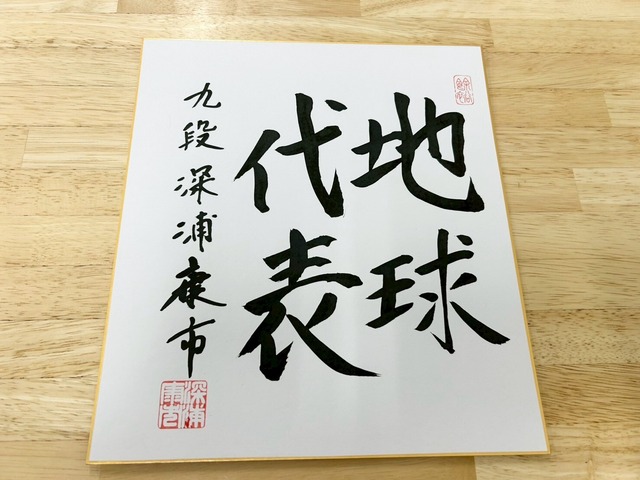 地球
代表
九段 深浦康市
深浦康市